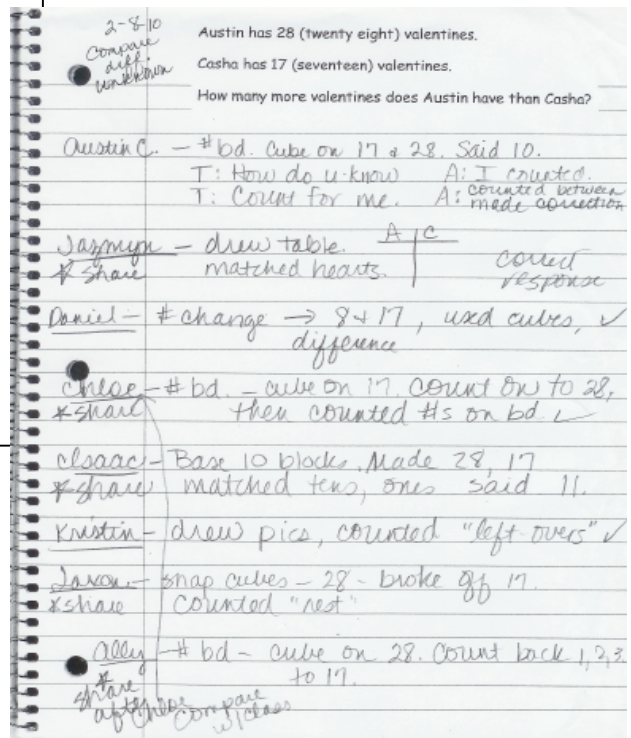 2-8-10
Compare
diff.
unknown
Austin has 28 (twenty eight) valentines.
Casha has 17 (seventeen) valentines.
How many more valentines does Austin have than Casha?
Austin C. – # bd. Cube on 17 & 28. Said 10.
T: How do u know A: I counted.
T: Count for me. A: counted between
made correction
Jazmyn – drew table. A | C
* share matched hearts. correct
response
Daniel – # change → 8 & 17, used cubes, ✓
difference
Chloe – # bd. – cube on 17. Count on to 28,
* share then counted #s on bd. ✓
Isaac – Base 10 blocks. Made 28, 17
* share matched tens, ones said 11.
Kristin – drew pics, counted "left-overs" ✓
Jaxon – snap cubes – 28 – broke off 17.
* share counted "rest"
Ally – # bd – cube on 28. Count back 1, 2, 3
* to 17.
share
after Chloe Compare
w/class